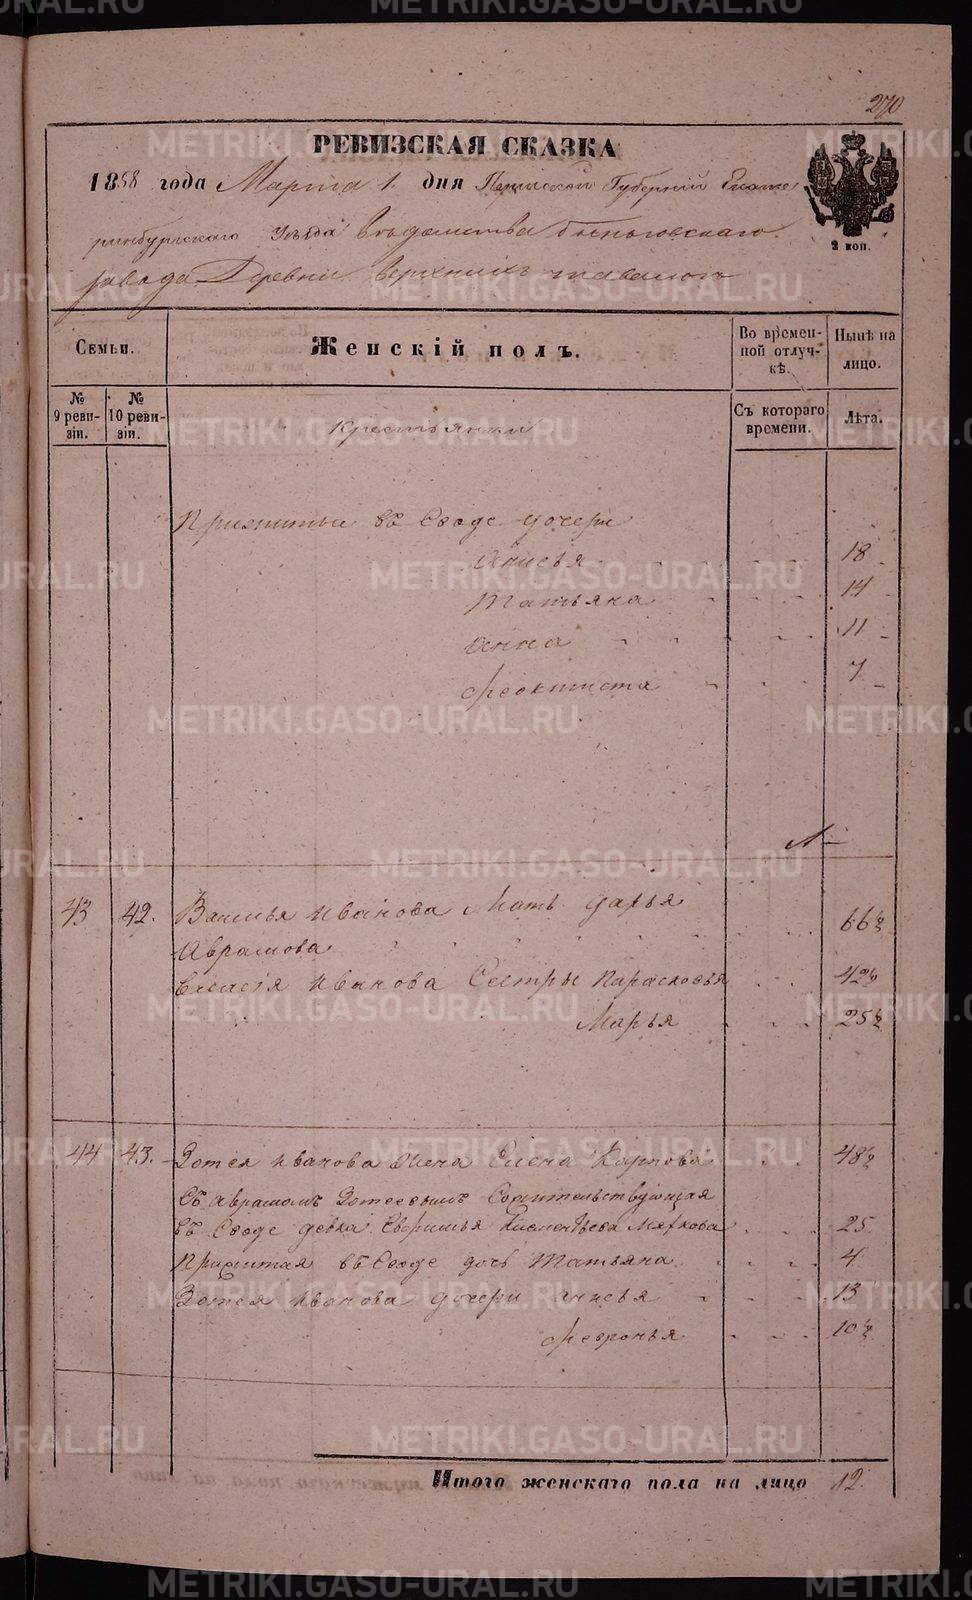 270
РЕВИЗСКАЯ СКАЗКА
1858 года Марта 1. дня Пермской Губерніи Екате
ринбургскаго Уѣзда Вѣдомства Быньговскаго
завода Деревни Верхнихъ тавологъ
2 коп.
Семьи.
Женскій полъ.
Во времен-
ной отлуч-
кѣ.
Нынѣ на
лицо.
№
9 реви-
зіи.
№
10 реви-
зіи.
Съ котораго
времени.
Лѣта.
Крестьянки
Прижитые въ Сводѣ дочери
Анисья 18
Татьяна 14
Анна 11
Феоктиста 7
43 42. Василья Иванова Мать Дарья
Аврамова 66½
Елисея Иванова Сестры Парасковья 42½
Марья 25½
44 43. Зотея Иванова Жена Елена Карпова 48½
Съ Аврамомъ Зотеевымъ Сожительствующая
въ Сводѣ девка Секлетинья Мяхкова 25
Прижитая въ Сводѣ дочь Татьяна 4
Зотея Иванова дочери Анисья 13
Февронья 10½
Итого женскаго пола на лицо 12.
METRIKI.GASO-URAL.RU